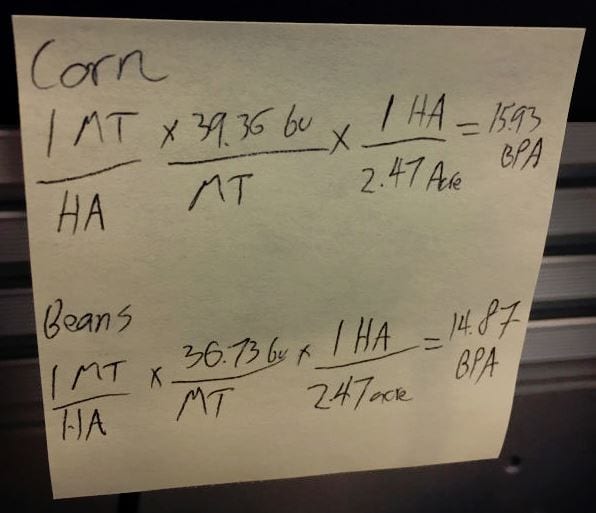 Corn
1 MT/HA x 39.36 bu/MT x 1 HA/2.47 Acre = 15.93 BPA
Beans
1 MT/HA x 36.73 bu/MT x 1 HA/2.47 acre = 14.87 BPA